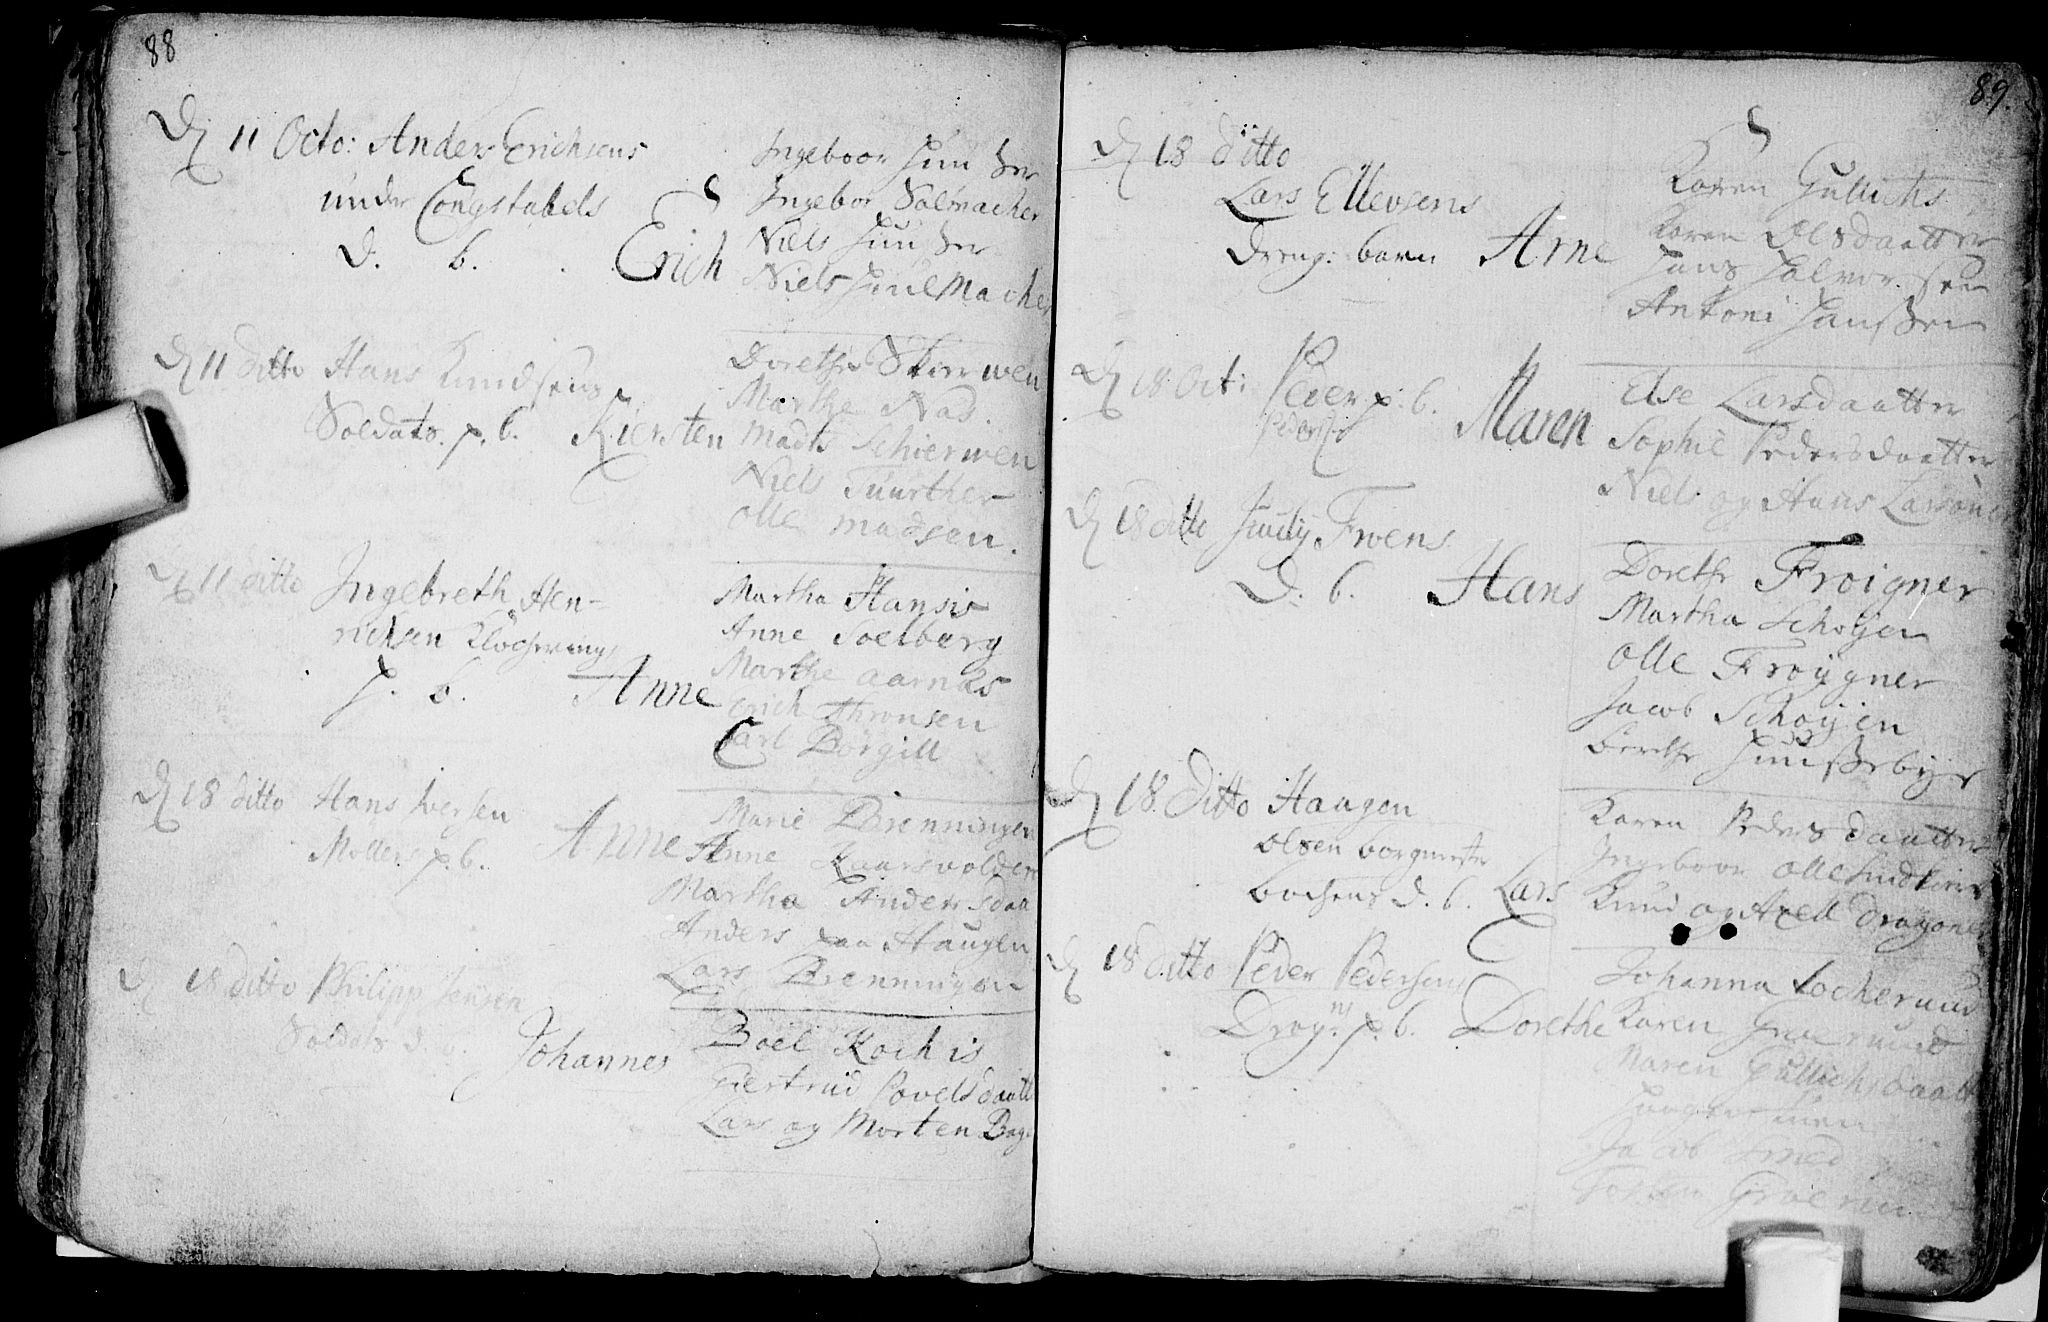 88
D 11 Octo: Anders Erichsens
under Congstabels
D. b. Erich
Ingeboor
Ingebor Solmacher
Niels
Niels Huulmacher
D 11 ditto Hans Knudsens
Soldats. p. b. Kiersten
Dorethe Skierwen
Marthe Nas
Mads Schierwen
Niels Tuurther
Olle Madsen.
D 11 ditto Ingebreth Hen=
richsen
p. b. Anne
Martha Hansis
Anne Soelberg
Marthe Aarnæs
Erich Thronsen
Carl Borgill
D 18 ditto Hans Iversen
Møllers p. b. Anne
Marie Brenningen
Anne Kaarsvolden
Martha Andersdaa
Anders paa Haugen
Lars Brenningen
D 18 ditto Philipp Jensen
Soldats d. b. Johannes
Boel Kochis
Giertrud Povelsdaatt
Lars og Morten Bag
89.
D 18 ditto
Lars Ellevsens
Dreng: barn Arne
Karen Gullichs
Karen Olsdaatter
Hans Halvorsen
Antoni Hanssen
D 18 Oct: Peder p. b. Maren
Else Larsdaatter
Sophie Pedersdaatter
Niels og Hans Larsøner
D 18 ditto Froens
D. b. Hans
Dorethe Froigner
Martha Schoyen
Olle Froÿgner
Jacob Schoyen
Berethe Huusebye
D 18 Ditto Haagen
Olsen borgmester
d. b. Lars
Karen Pedersdaatter
Ingeboor Olle
Knud og Axell Dragoner
D 18 ditto Peder Pedersens
Drag: p. b. Dorethe
Johanna Locherund
Karen
Maren Gullichsdaatt
Jacob Smed